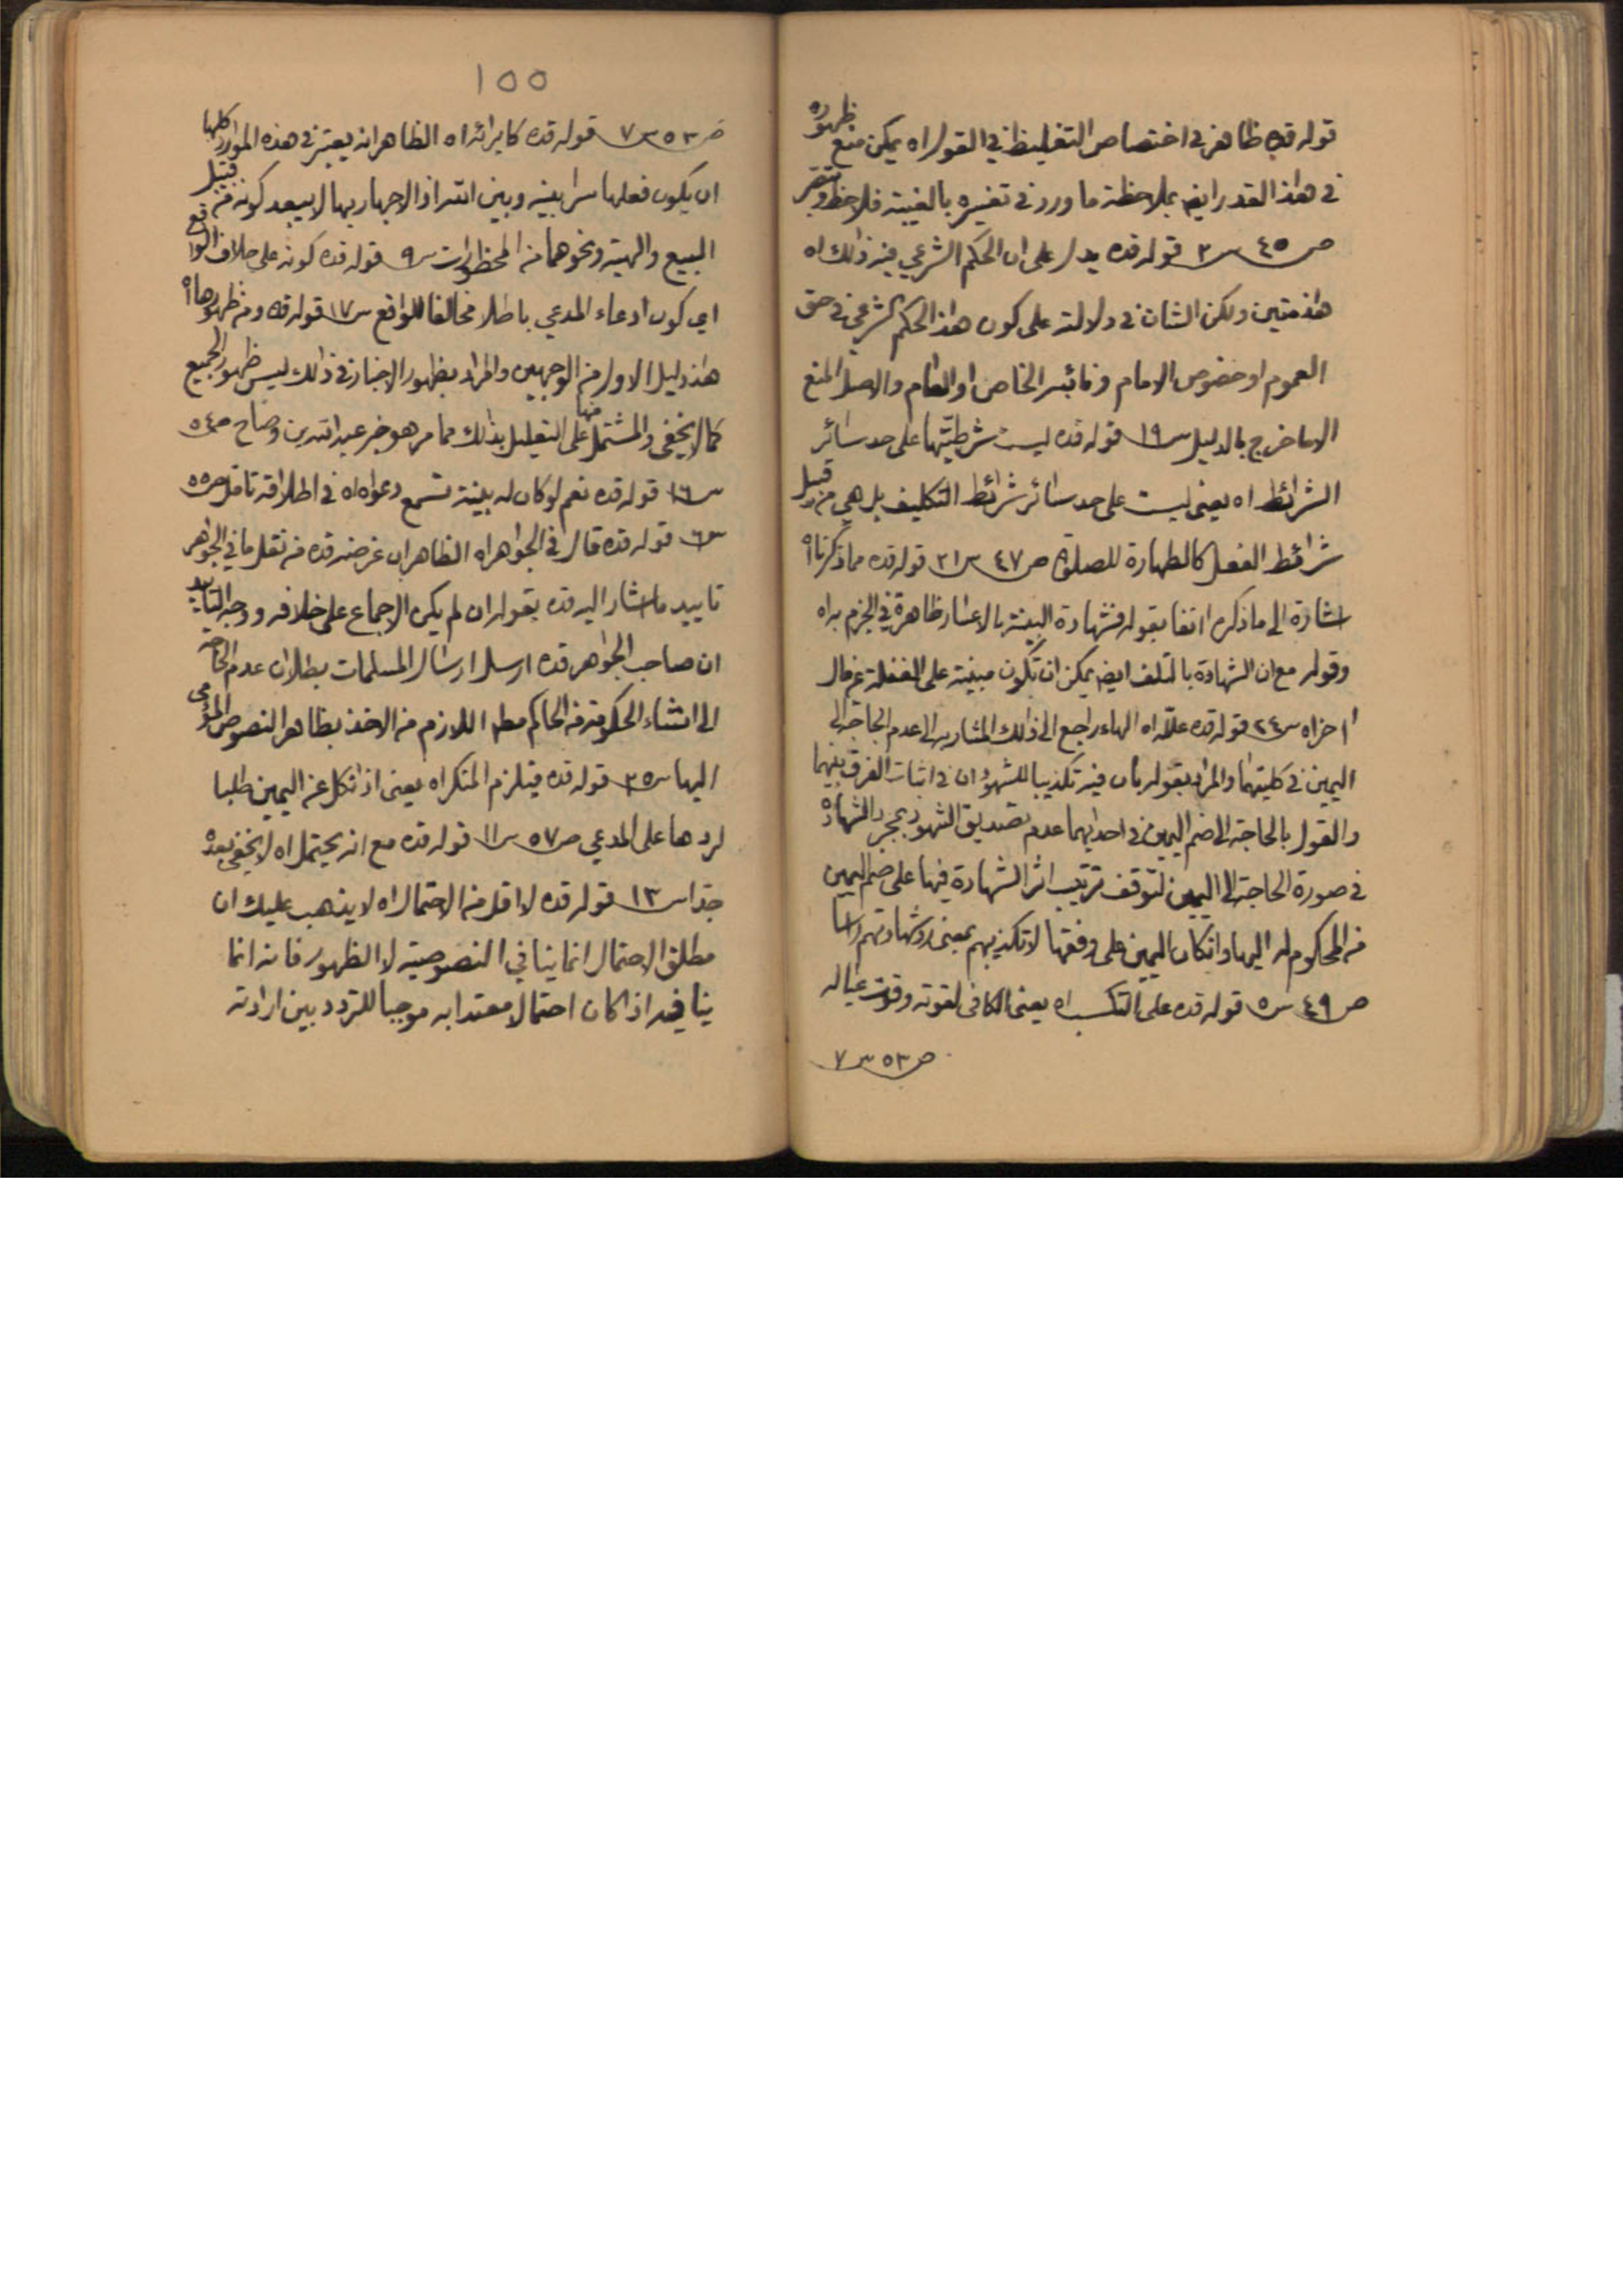 قوله قده ظاهر في اختصاص التغليظ في القول اه يمكن منع ظهوره
في هذا القدر ايضا بملاحظة ما ورد في تفسيره بالغيبة فلاحظ وتبصر
ص ٤٥ س ٢ قوله قده يدل على ان الحكم الشرعي فيه ذلك اه
هذا متين ولكن الشان في دلالته على كون هذا الحكم الشرعي في حق
العموم او خصوص الامام ونائبه الخاص او العام والاصل المنع
الا ما خرج بالدليل س ١٩ قوله قده ليست شرطيتها على حد سائر
الشرائط اه يعني ليست على حد سائر شرائط التكليف بل هي من قبيل
شرائط الفعل كالطهارة للصلوة ص ٤٧ س ٢١ قوله قده مما ذكرنا اه
اشارة الى ما ذكره انفا بقوله فشهادة البينة بالاعسار ظاهرة في الجزم به اه
وقوله مع ان الشهادة بالتلف ايضا يمكن ان تكون مبنية على الغفلة عن مال
اخر اه س ٢٤ قوله قده علله اه الهاء راجع الى ذلك المشار به الى عدم الحاجة الى
اليمين في كليتهما والمراد بقوله بان فيه تكذيبا للشهود ان في اثبات الفرق بينهما
والقول بالحاجة الى ضم اليمين في احدايهما عدم تصديق الشهود بمجرد الشهادة
في صورة الحاجة الى اليمين لتوقف ترتيب اثر الشهادة فيها على ضم اليمين
من المحكوم له اليها وان كان اليمين على وفقها لا تكذيبهم بمعنى رد شهادتهم راسا
ص ٤٩ س ٥ قوله قده على التكسب اه يعني الكافي لقوته وقوت عياله
ص ٥٣ س ٧
١٥٥
ص ٥٣ س ٧ قوله قده كابرائه اه الظاهر انه يعتبر في هذه الموارد كلها
ان يكون فعلها سرا بينه وبين الله اذ الاجهار بها لا يبعد كونه من قبيل
البيع والهبة ونحوهما من المحظورات س ٩ قوله قده كونه على خلاف الواقع
اي كون ادعاء المدعي باطلا مخالفا للواقع س ١٧ قوله قده ومن ظهورها اه
هذا دليل الاول من الوجهين والمراد بظهور الاخبار في ذلك ليس ظهور الجميع
كما لا يخفى والمشتمل منها على التعليل بذلك مما مر هو خبر عبد الله بن وضاح ص ٥٤
س ١٦ قوله قده نعم لو كان له بينة تسمع دعواه اه في اطلاقه تامل ص ٥٥
س ٦ قوله قده قال في الجواهر اه الظاهر ان غرضه قده من نقل ما في الجواهر
تاييد ما اشار اليه قده بقوله ان لم يكن الاجماع على خلافه ووجه التاييد
ان صاحب الجواهر قده ارسل ارسال المسلمات بطلان عدم الحاجة
الى انشاء الحكومة من الحاكم مطلقا اللازم من الاخذ بظاهر النصوص المومى
اليها س ٢٥ قوله قده فيلزم المنكر اه يعني اذا نكل عن اليمين طلبا
لردها على المدعي ص ٥٧ س ١١ قوله قده مع انه يحتمل اه لا يخفى بعده
جدا س ١٣ قوله قده لا اقل من الاحتمال اه لا يذهب عليك ان
مطلق الاحتمال انما ينافي النصوصية لا الظهور فانه انما
ينافيه اذا كان احتمالا معتدا به موجبا للتردد بين ارادته